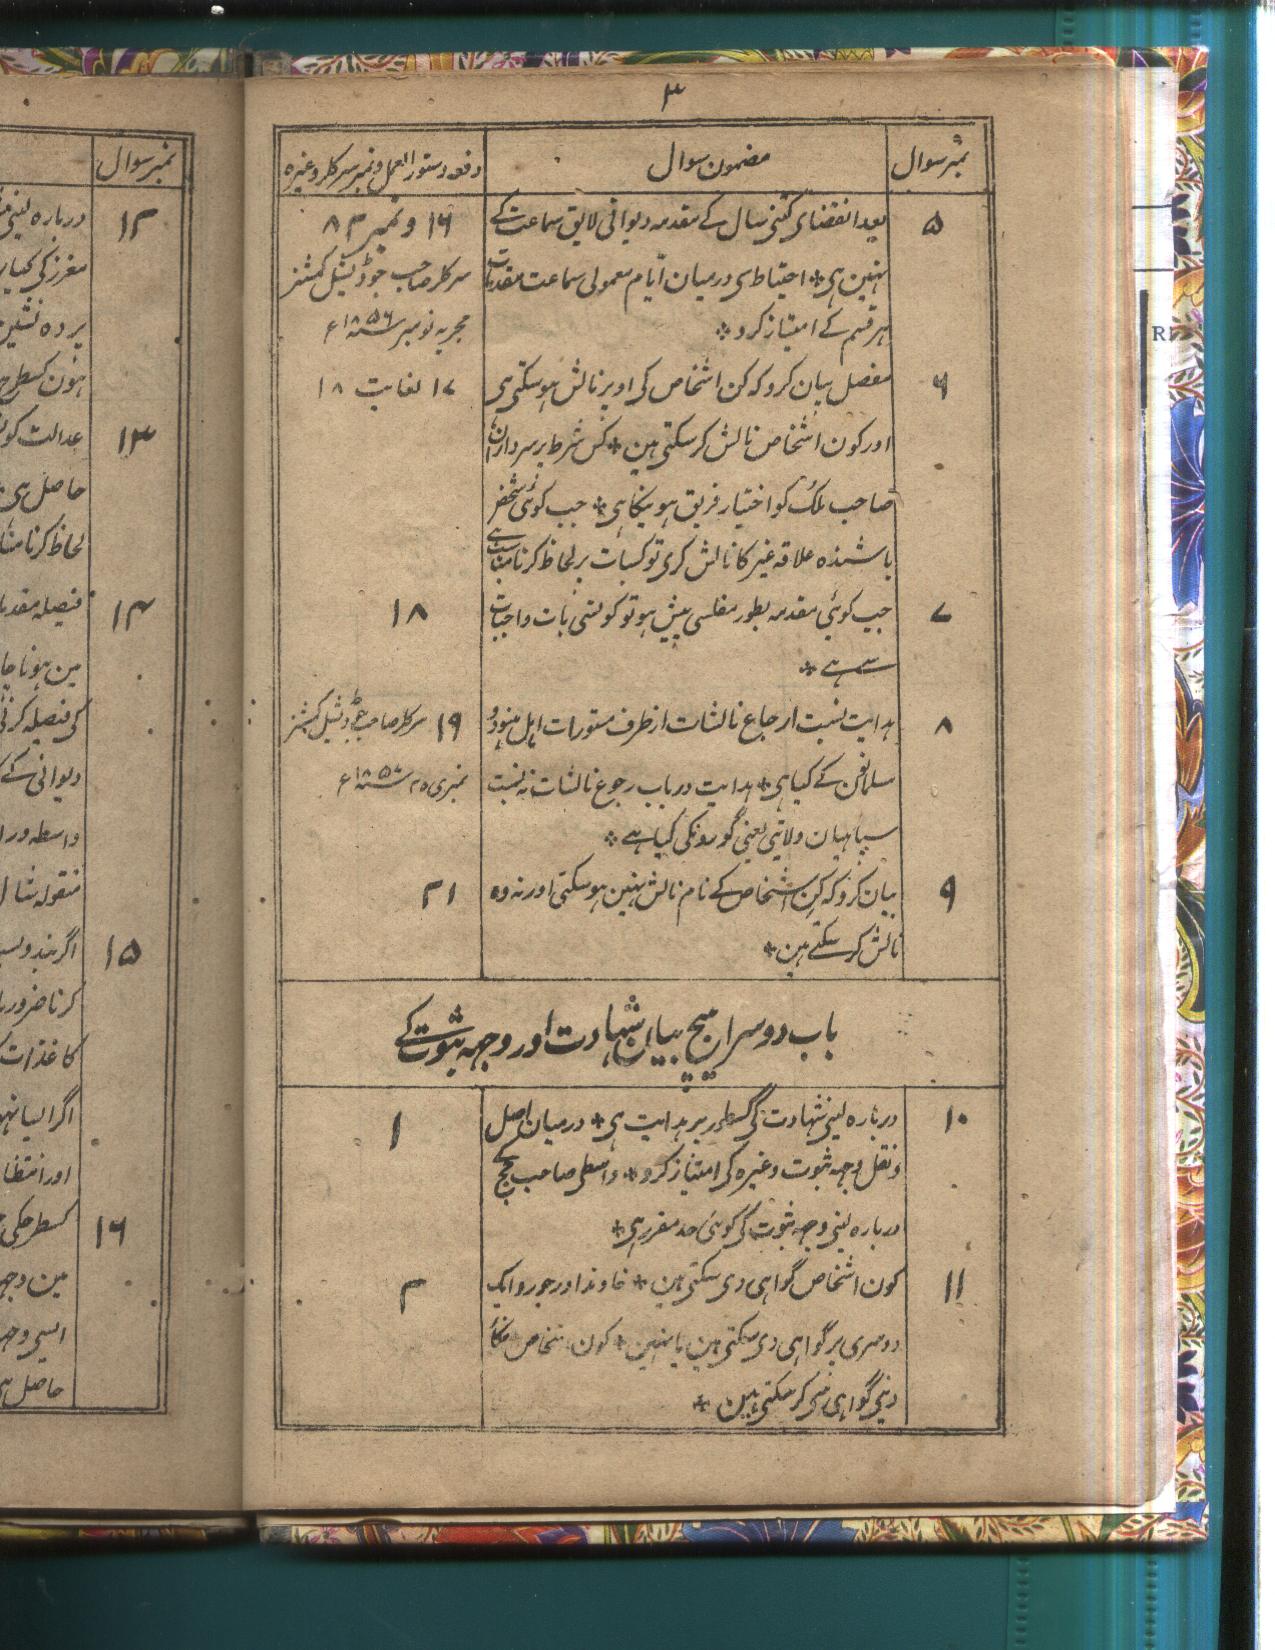 ۳
نمبر سوال
مضمون سوال
دفعہ دستور العمل و نمبر سرکلر وغیرہ
۵
بعد انقضای کتنی سال کے مقدمہ دیوانی لایق سماعت کے
نہین ہی * احتیاطی درمیان ایّام معمولی سماعت مقدمات
ہر قسم کے امتیاز کرو *
۱۶ و نمبر ۸۳
سرکلر صاحب جوڈیشل کمشنر
مجریہ نومبر سنہ ۱۸۵۶ع
۶
مفصل بیان کرو کہ کن اشخاص کی اوپر نالش ہوسکتی ہی
اور کون اشخاص نالش کرسکتی ہین * کس شرط پر سرداران
صاحب ملک کو اختیار فریق ہونیکا ہی * جب کوئی شخص
باشندہ علاقہ غیر کا نالش کری تو کسبات پر لحاظ کرنا مناسب ہے
۱۷ لغایت ۱۸
۷
جب کوئی مقدمہ بطور مفلسی پیش ہو تو کونسی بات واجبات
سے ہے *
۱۸
۸
ہدایت نسبت ارجاع نالشات از طرف مستورات اہل ہنود و
مسلمانون کے کیا ہی * ہدایت درباب رجوع نالشات بہ نسبت
سپاہیان ولایتی یعنی گورونکی کیا ہے *
۱۹ سرکلر صاحب جوڈیشل کمشنر
نمبری ۲۵ سنہ ۱۸۵۷ع
۹
بیان کرو کہ کن اشخاص کے نام نالش نہین ہوسکتی اور نہ وہ
نالش کرسکتے ہین *
۲۱
باب دوسرا بیچ بیان شہادت اور وجہ ثبوت کے
۱۰
دربارہ لینی شہادت کی کسطور پر ہدایت ہی * درمیان اصل
و نقل وجہ ثبوت وغیرہ کی امتیاز کرو * واسطی صاحب جج
دربارہ لینی وجہ ثبوت کی کوئی حد مقرر ہی *
۱
۱۱
کون اشخاص گواہی دی سکتی ہین * خاوند اور جورو ایک
دوسری پر گواہی دی سکتی ہین یا نہین * کون اشخاص
دینی گواہی سی کرسکتی ہین *
۲
نمبر سوال
۱۲
دربارہ لینی
معزز کی کیا
پردہ نشین
ہون کسطرح
۱۳
عدالت کو
حاصل ہی
لحاظ کرنا
۱۴
فیصلہ
مین ہونا
کی فیصلہ کرنی
دیوانی کے
واسطہ
منقولہ
۱۵
اگر
کرنا ضرور
کاغذات
اگر ایسا
اور
۱۶
کسطرحکی
مین وجہ
ایسی وجہ
حاصل